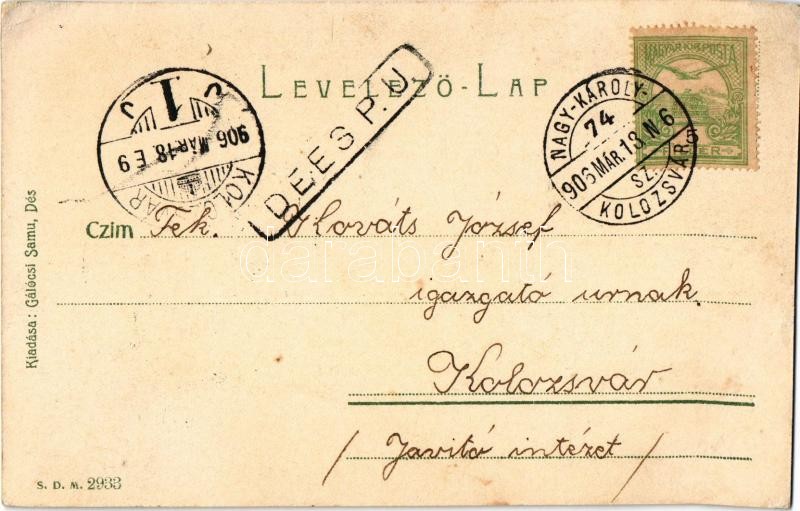 LEVELEZŐ-LAP
MAGYAR KIR. POSTA
NAGY-KÁROLY-
74
906 MÁR. 18. N 6
SZ. 5
KOLOZSVÁR
DEES P. U.
1
906 MÁR. 18. E 9
Czim Tek. Kováts József
igazgató urnak
Kolozsvár
/ Javitó intézet /
Kiadása: Gálócsi Samu, Dés
S. D. M. 2933
darabanth